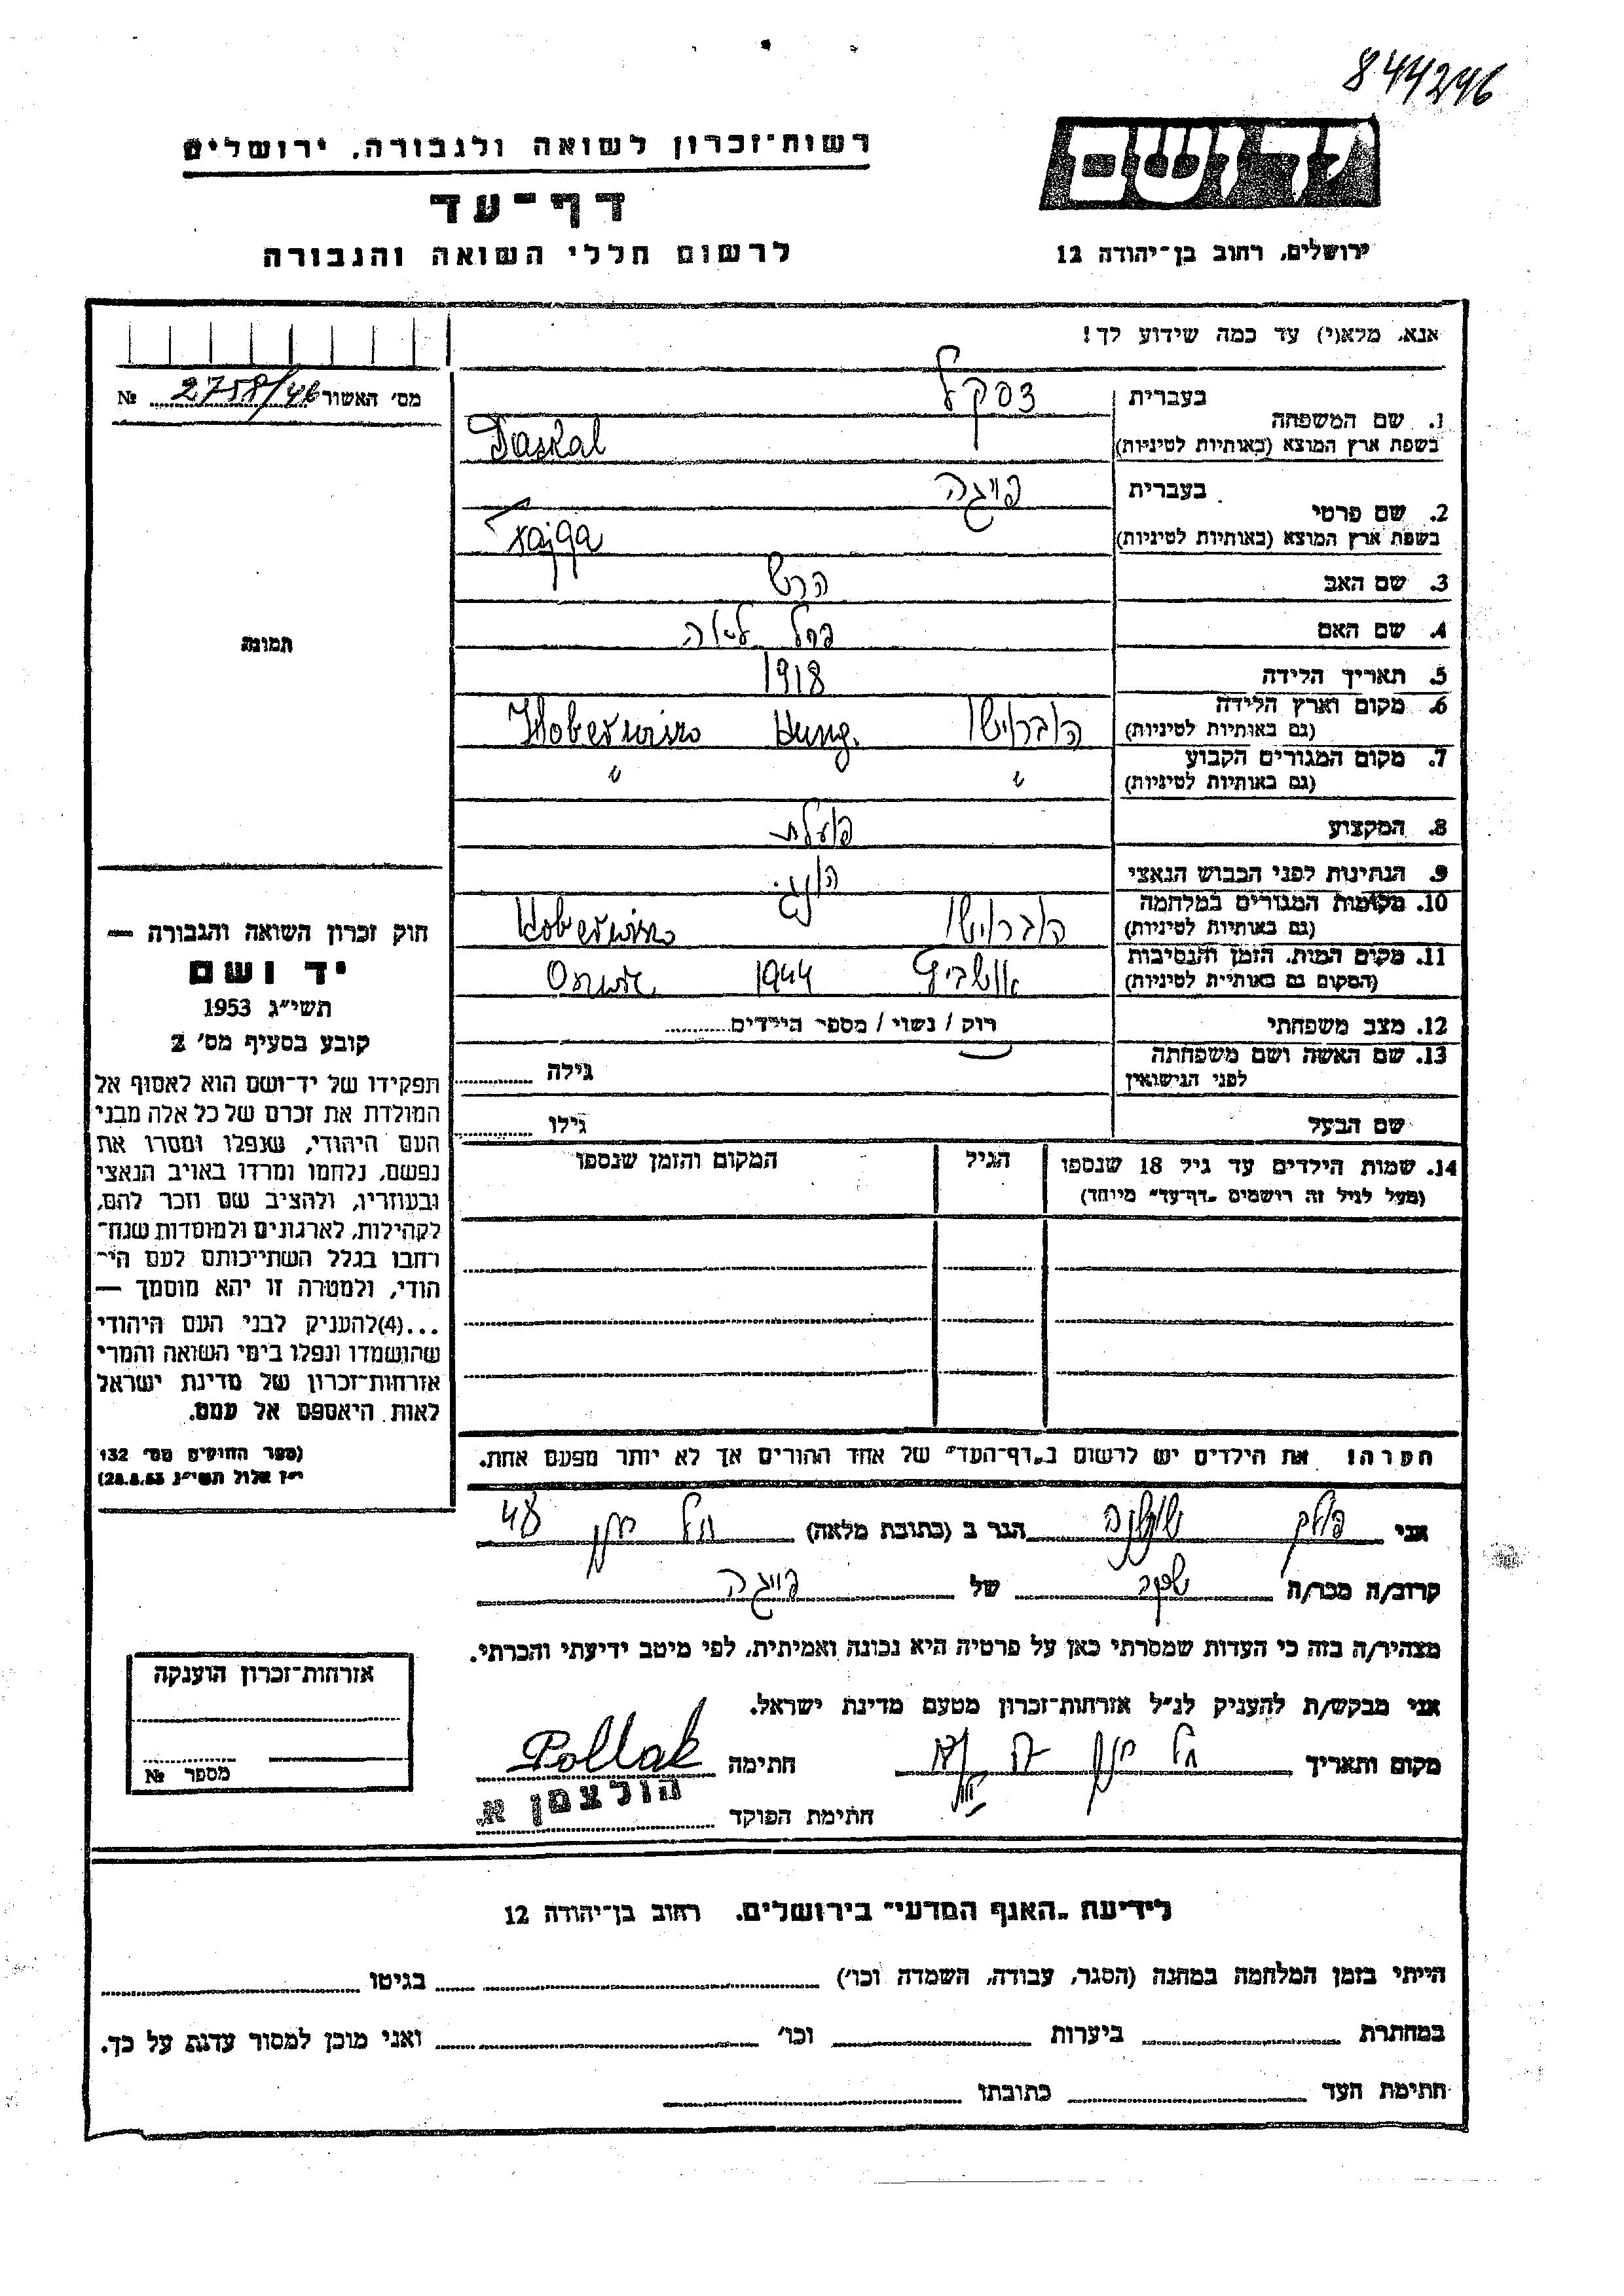 844246
רשות־זכרון לשואה ולגבורה, ירושלים
דף־עד
לרשום חללי השואה והגבורה
יד ושם
ירושלים, רחוב בן־יהודה 12
אנא, מלא(י) עד כמה שידוע לך!
מס׳ האשור 2758/46 №
תמונה
1. שם המשפחה
בעברית דסקל
בשפת ארץ המוצא (באותיות לטיניות) Daskal
2. שם פרטי
בעברית פייגה
בשפת ארץ המוצא (באותיות לטיניות) Fajga
3. שם האב הרש
4. שם האם רחל לאה
5. תאריך הלידה 1918
6. מקום וארץ הלידה
(גם באותיות לטיניות) Hung.
7. מקום המגורים הקבוע " "
(גם באותיות לטיניות)
8. המקצוע פועלת
9. הנתינות לפני הכבוש הנאצי הונג.
10. מקומות המגורים במלחמה
(גם באותיות לטיניות)
11. מקום המות, הזמן והנסיבות 1944
(המקום גם באותיות לטיניות)
12. מצב משפחתי רוק / נשוי / מספר הילדים
13. שם האשה ושם משפחתה
לפני הנישואין גילה
שם הבעל גילו
14. שמות הילדים עד גיל 18 שנספו הגיל המקום והזמן שנספו
(מעל לגיל זה רושמים „דף־עד״ מיוחד)
חוק זכרון השואה והגבורה —
יד ושם
תשי״ג 1953
קובע בסעיף מס׳ 2
תפקידו של יד־ושם הוא לאסוף אל
המולדת את זכרם של כל אלה מבני
העם היהודי, שנפלו ומסרו את
נפשם, נלחמו ומרדו באויב הנאצי
ובעוזריו, ולהציב שם וזכר להם,
לקהילות, לארגונים ולמוסדות שנח־
רבו בגלל השתייכותם לעם הי־
הודי, ולמטרה זו יהא מוסמך —
...(4)להעניק לבני העם היהודי
שהושמדו ונפלו בימי השואה והמרי
אזרחות־זכרון של מדינת ישראל
לאות היאספם אל עמם.
(ספר החוקים מס׳ 132
י״ז אלול תשי״ג 28.8.53)
הערה! את הילדים יש לרשום ב„דף־העד״ של אחד ההורים אך לא יותר מפעם אחת.
אני פולק הגר ב (כתובת מלאה) 48
קרוב/ה מכר/ה של פייגה
מצהיר/ה בזה כי העדות שמסרתי כאן על פרטיה היא נכונה ואמיתית, לפי מיטב ידיעתי והכרתי.
אני מבקש/ת להעניק לנ״ל אזרחות־זכרון מטעם מדינת ישראל.
מקום ותאריך חתימה Pollak
חתימת הפוקד הולצמן א.
אזרחות־זכרון הוענקה
מספר №
לידיעת „האגף המדעי״ בירושלים, רחוב בן־יהודה 12
הייתי בזמן המלחמה במחנה (הסגר, עבודה, השמדה וכו׳) בגיטו
במחתרת ביערות וכו׳ ואני מוכן למסור עדות על כך.
חתימת העד כתובתו